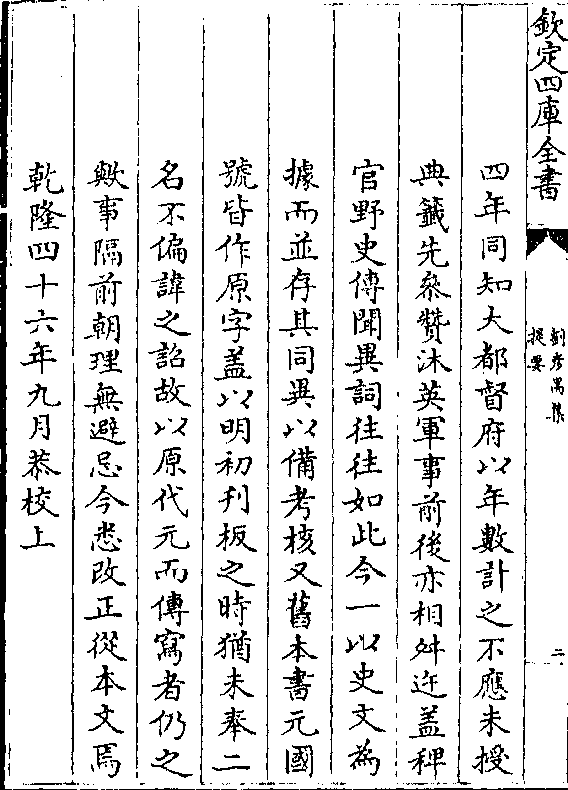 欽定四庫全書
劉彦昺集
提要
二
四年同知大都督府以年數計之不應未授
典籤先叅贊沐英軍事前後亦相舛迕盖稗
官野史傳聞異詞往往如此今一以史文為
據而並存其同異以備考核又舊本書元國
號皆作原字盖以明初刋板之時猶未奉二
名不偏諱之詔故以原代元而傳寫者仍之
歟事隔前朝理無避忌今悉改正從本文焉
乾隆四十六年九月恭校上